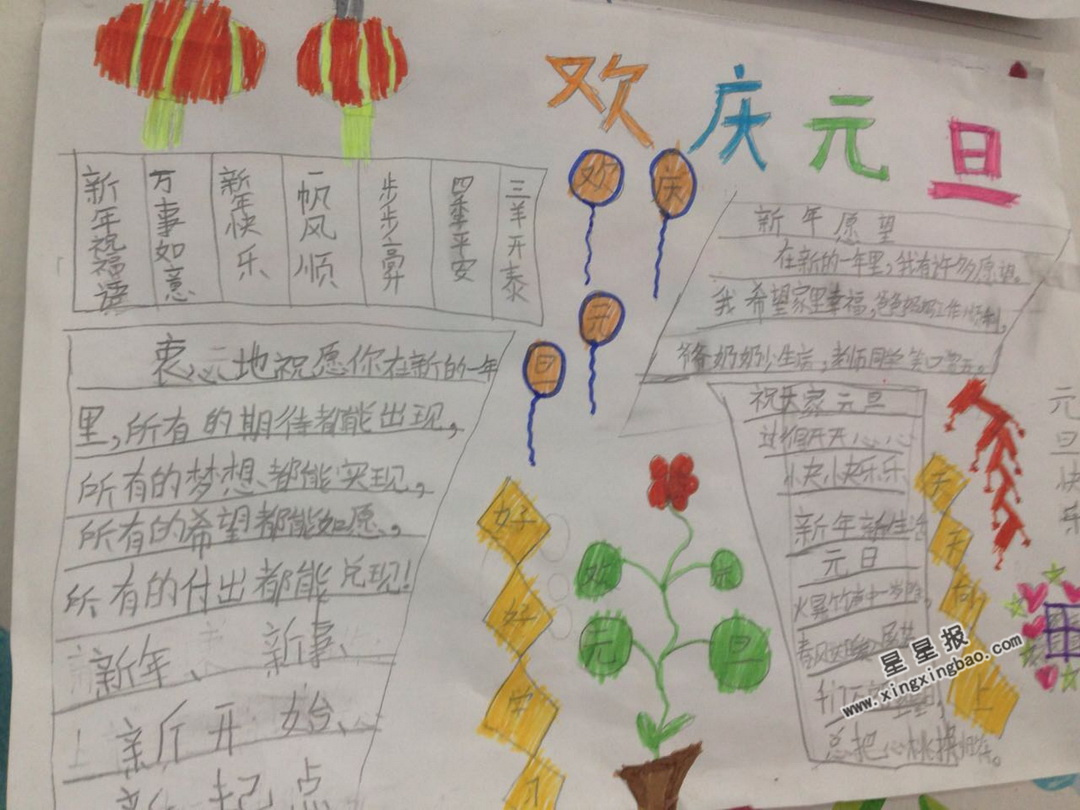 欢庆元旦
新年祝福语
万事如意
新年快乐
一帆风顺
步步高升
四季平安
三羊开泰
衷心地祝愿你在新的一年
里,所有的期待都能出现,
所有的梦想都能实现,
所有的希望都能如愿,
所有的付出都能兑现!
新年、新事、
新开始、
新起点
欢
庆
元
旦
新年愿望
在新的一年里,我有许多愿望。
我希望家里幸福,爸爸妈妈工作顺利,
爷爷奶奶少生病,老师同学笑口常开。
祝大家元旦
过得开开心心
快快乐乐
新年新生活
元日
爆竹声中一岁除,
春风送暖
总把
好
好
学
习
天
天
向
上
欢
元
旦
元旦快乐
星星报
www.xingxingbao.com